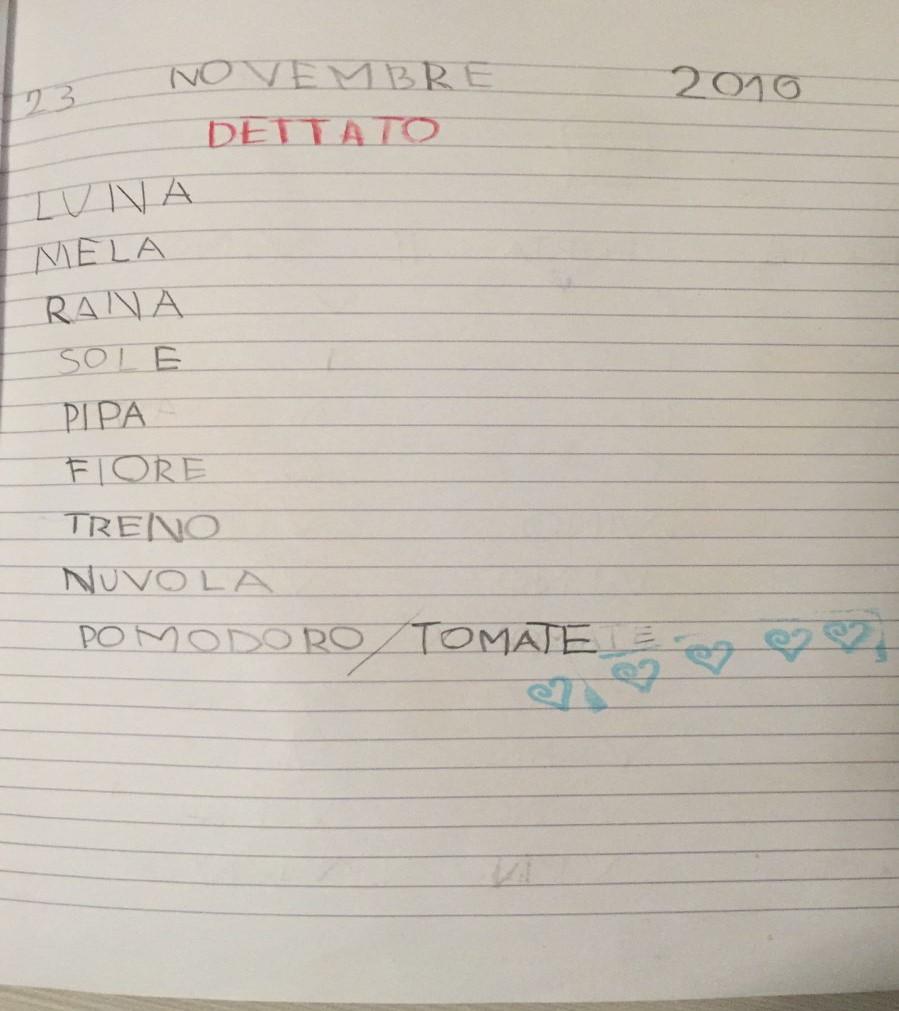 23 NOVEMBRE 2016
DETTATO
LUNA
MELA
RANA
SOLE
PIPA
FIORE
TRENO
NUVOLA
POMODORO / TOMATE